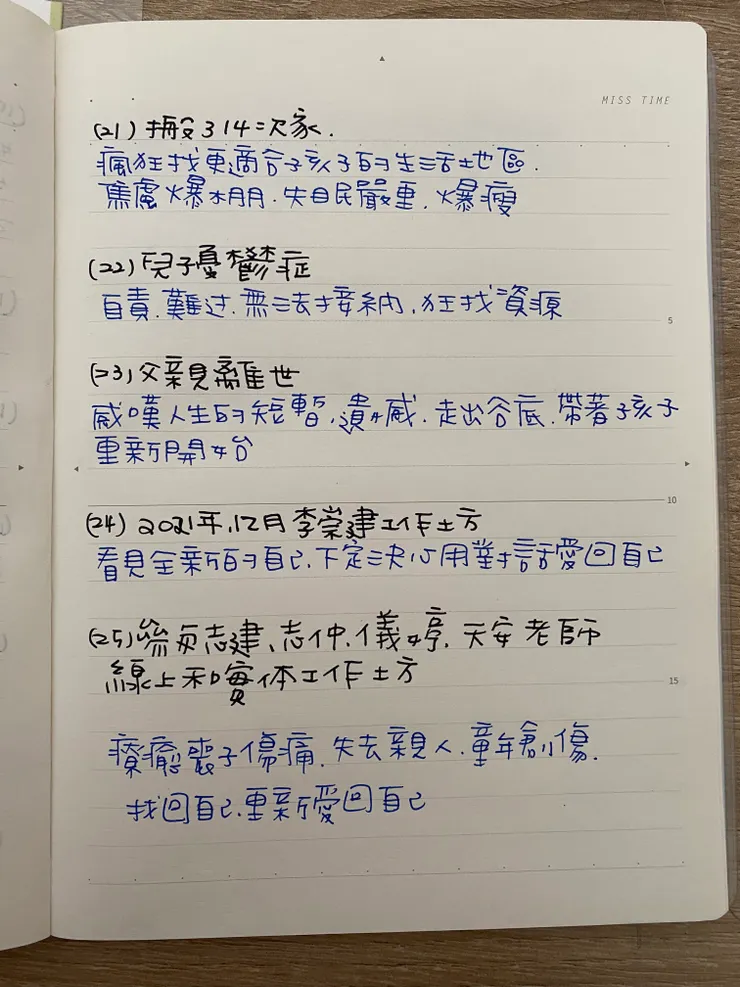 MISS TIME
(21) 搬314次家.
瘋狂找更適合孩子的生活地區.
焦慮爆棚.失眠嚴重.爆瘦
(22) 兒子憂鬱症
自責.難过.無法接納.狂找資源
5
(23) 父親離世
感嘆人生的短暫.遺憾.走出谷底.帶著孩子
重新開始
10
(24) 2021年.12月李崇建工作土方
看見全新的自己.下定決心用對話愛回自己
(25) 參與志建、志仲.儀婷.天安老師
線上和實体工作土方
15
療癒喪子傷痛.失去親人.童年創傷.
找回自己.重新愛回自己